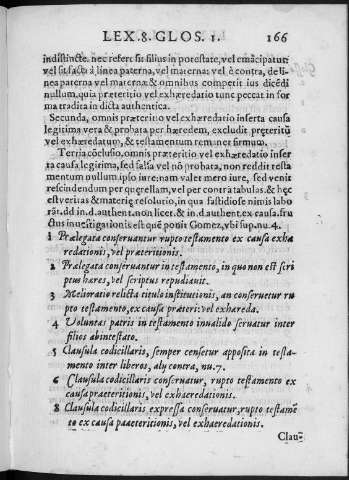 LEX.8. GLOS. 1. 166
indistincte. nec refert sit filius in potestate, vel emãcipatus:
vel sit facta à linea paterna, vel materna: vel è contra, de li-
nea paterna vel materna: & omnibus competit ius dicẽdi
nullum, quia præteritio vel exhæredatio tunc peccat in for
ma tradita in dicta authentica.
Secunda, omnis præteritio vel exhæredatio inserta causa
legitima vera & probata per hæredem, excludit præteritũ
vel exhæredatum, & testamentum remanet firmum.
Tertia cõclusio, omnis præteritio vel exhæredatio inser
ta causa legitima, sed falsa vel nõ probata, non reddit resta
mentum nullum ipso iure, nam valet mero iure, sed venit
rescindendum per querellam, vel per contra tabulas. & hęc
est veritas & materię resolutio, in qua fastidiose nimis labo
rãt. dd in d. authent. non licet. & in d. authent. ex causa. fru
ctus inuestigationis est quē ponit Gomez, vbi sup. nu. 4.
1 Prælegata conseruantur rupto testamento ex causa exhæ
redationis, vel præteritionis.
2 Prælegata conseruantur in testamento, in quo non est scri
ptus hares, vel scriptus repudiauit.
3 Melioratio relicta titulo institutionis, an conseruetur ru
pto testamento, ex causa præteri: vel exhæreda.
4 Voluntas patris in testamento inualido seruatur inter
filios abintestato.
5 Clausula codicillaris, semper censetur apposita in testa-
mento inter liberos, aly contra, nu. 7.
6 Clausula codicillaris conseruatur, rupto testamento ex
causa præteritionis, vel exhæredationis.
8 Clausula codicillaris expressa conseruatur, rupto testamē
to ex causa paæteritionis, vel exhæredationis.
Clau-